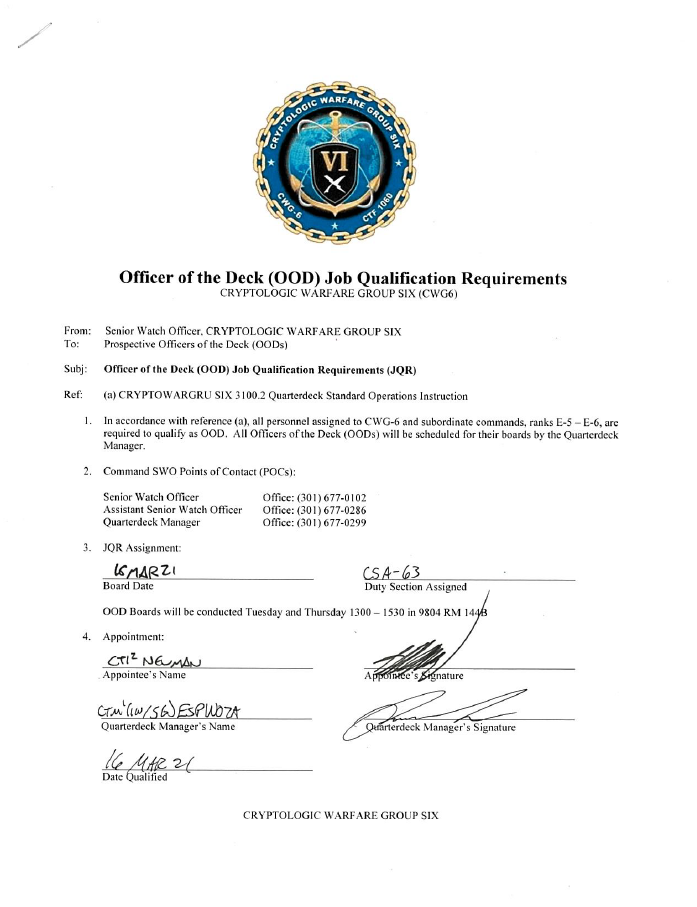 CRYPTOLOGIC WARFARE GROUP SIX
VI
CWG-6
CTF 1060
Officer of the Deck (OOD) Job Qualification Requirements
CRYPTOLOGIC WARFARE GROUP SIX (CWG6)
From: Senior Watch Officer, CRYPTOLOGIC WARFARE GROUP SIX
To: Prospective Officers of the Deck (OODs)
Subj: Officer of the Deck (OOD) Job Qualification Requirements (JQR)
Ref: (a) CRYPTOWARGRU SIX 3100.2 Quarterdeck Standard Operations Instruction
1. In accordance with reference (a), all personnel assigned to CWG-6 and subordinate commands, ranks E-5 – E-6, are
required to qualify as OOD. All Officers of the Deck (OODs) will be scheduled for their boards by the Quarterdeck
Manager.
2. Command SWO Points of Contact (POCs):
Senior Watch Officer Office: (301) 677-0102
Assistant Senior Watch Officer Office: (301) 677-0286
Quarterdeck Manager Office: (301) 677-0299
3. JQR Assignment:
MAR21 CSA-63
Board Date Duty Section Assigned
OOD Boards will be conducted Tuesday and Thursday 1300 – 1530 in 9804 RM 144B
4. Appointment:
CTI2 NEWMAN
Appointee's Name Appointee's Signature
(IW/SG) ESPINOZA
Quarterdeck Manager's Name Quarterdeck Manager's Signature
16 MAR 21
Date Qualified
CRYPTOLOGIC WARFARE GROUP SIX